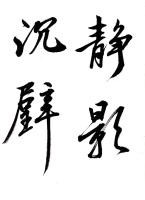 静影
沉璧